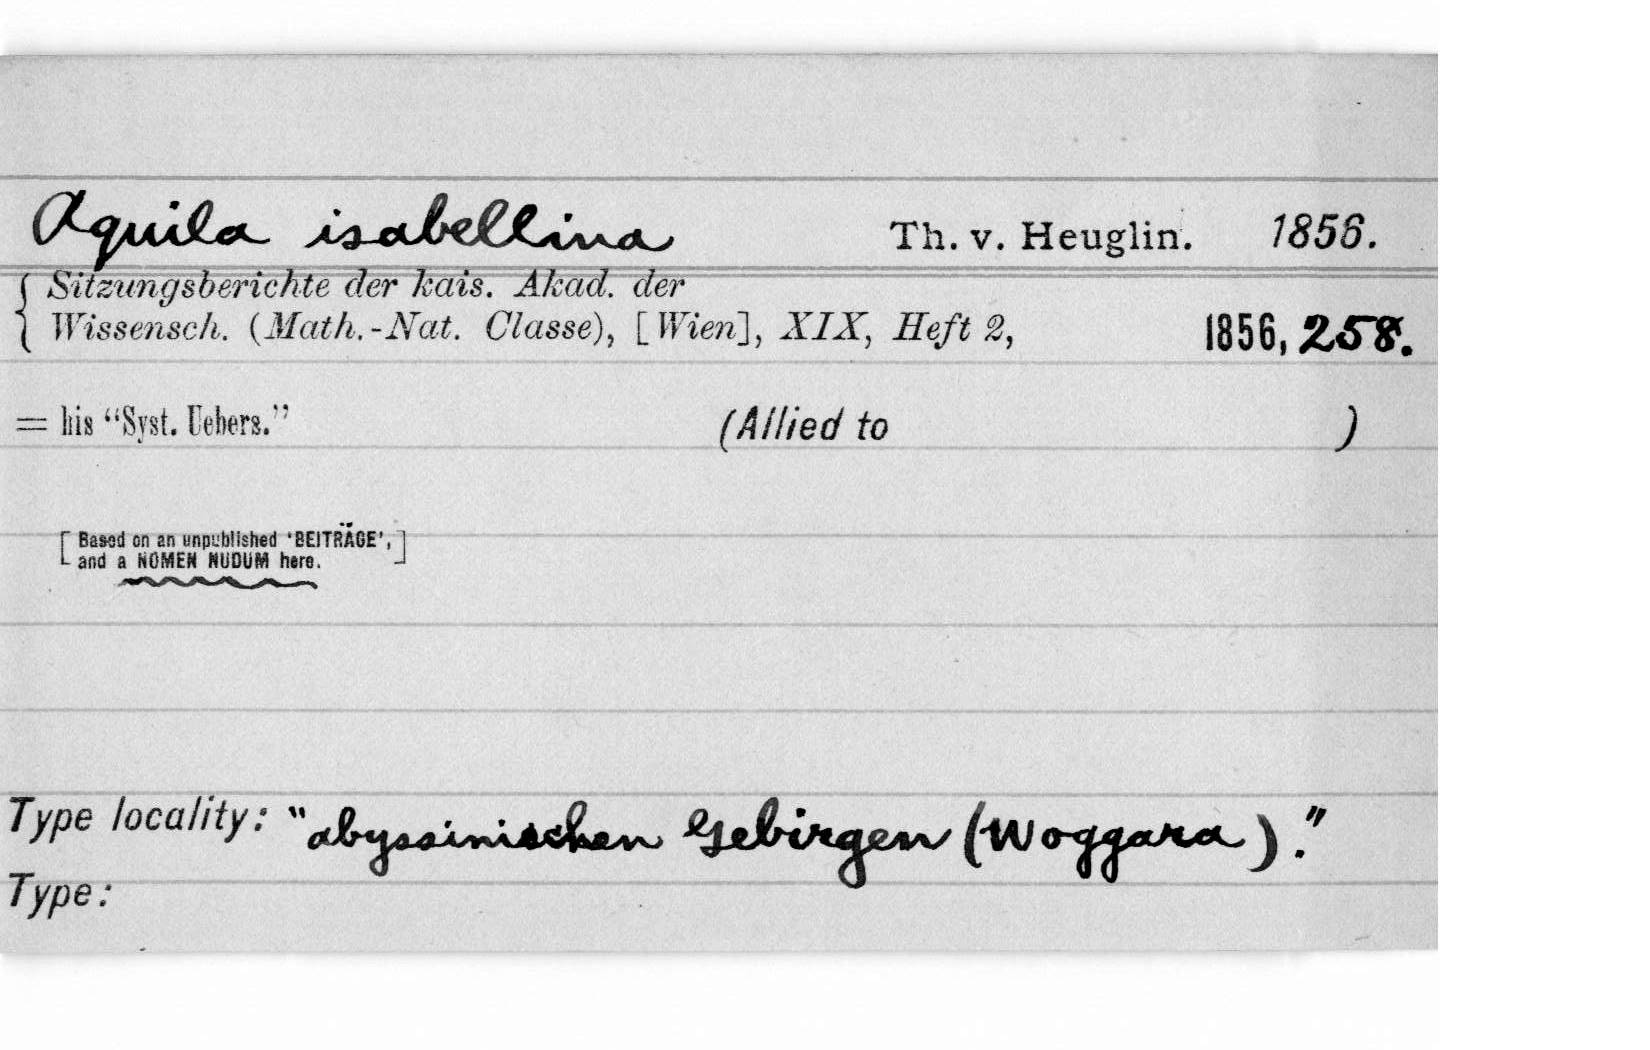 Aquila isabellina Th. v. Heuglin. 1856.
{ Sitzungsberichte der kais. Akad. der
Wissensch. (Math.-Nat. Classe), [Wien], XIX, Heft 2, 1856, 258.
= his “Syst. Uebers.” (Allied to )
[ Based on an unpublished ‘BEITRÄGE’,
and a NOMEN NUDUM here. ]
Type locality: "abyssinischen Gebirgen (Woggara)."
Type: